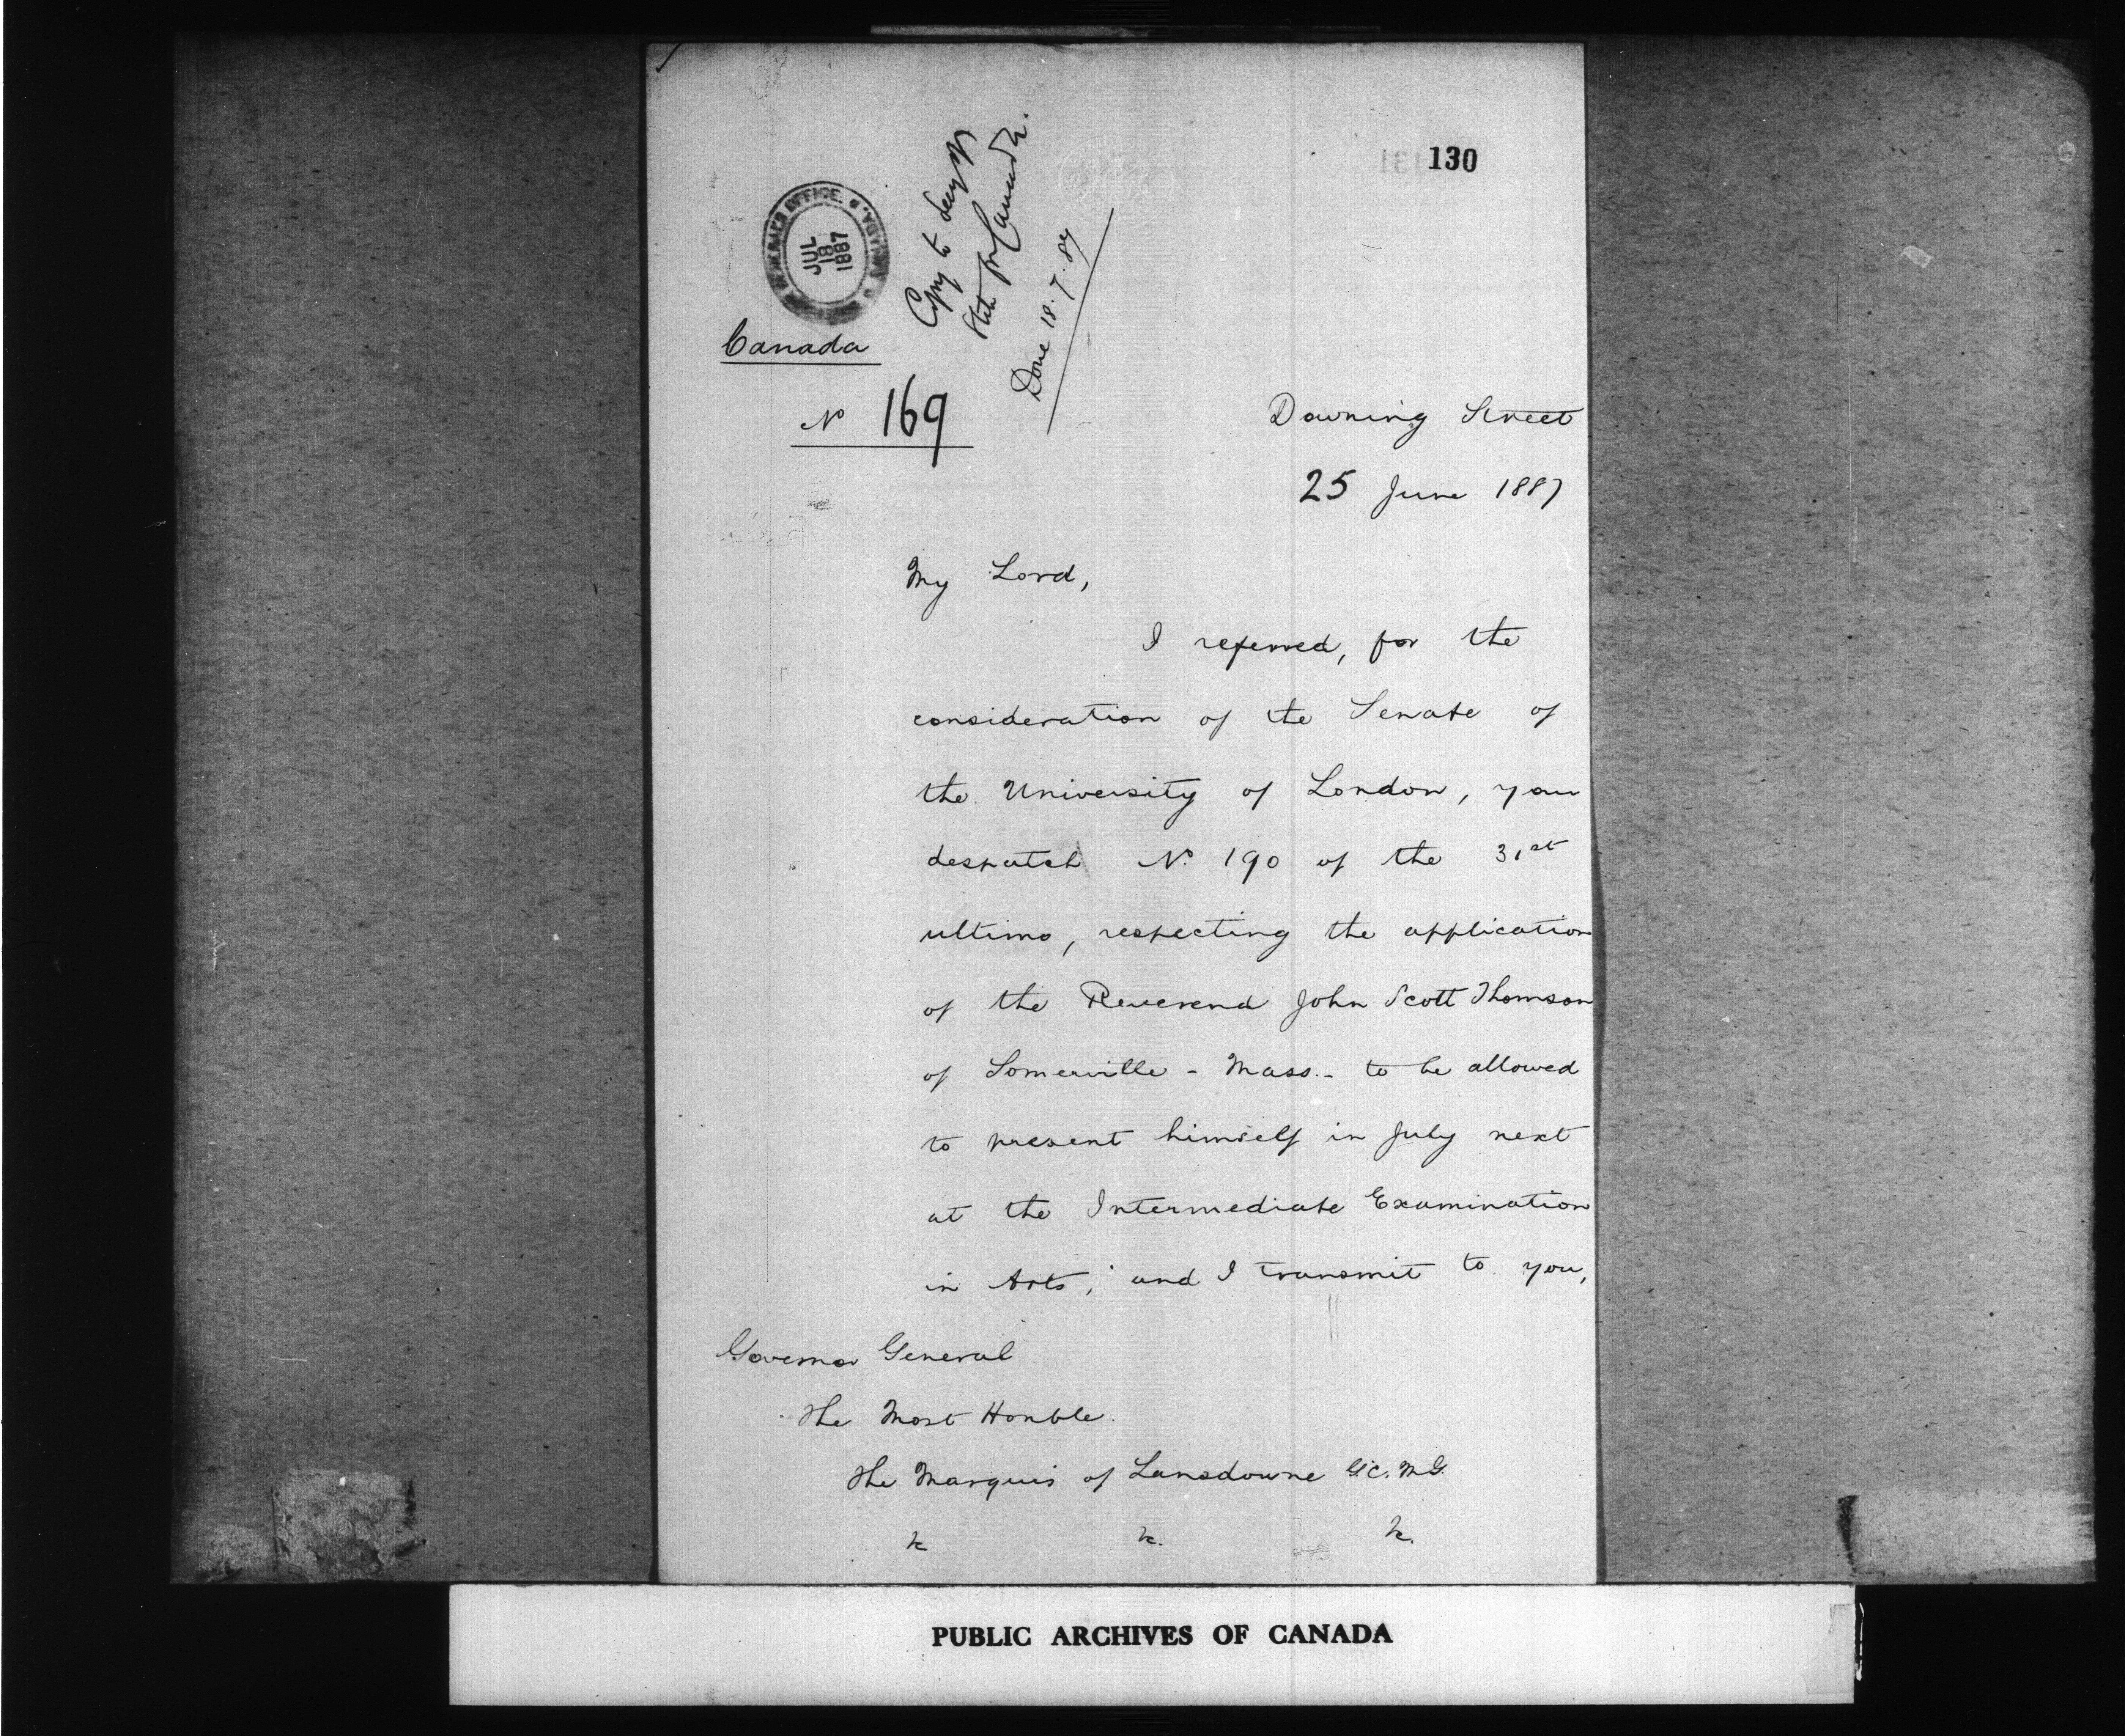 130
GENERAL'S OFFICE. OTTAWA.
JUL
18
1887
Copy to Secy of
State for Canada.
Done 18.7.87
Canada
No 169
Downing Street
25 June 1887
My Lord,
I referred, for the
consideration of the Senate of
the University of London, your
despatch No. 190 of the 31st
ultimo, respecting the application
of the Reverend John Scott Thomson
of Somerville - Mass. - to be allowed
to present himself in July next
at the Intermediate Examination
in Arts; and I transmit to you,
Governor General
The Most Honble.
The Marquis of Lansdowne G.C.M.G.
&c &c. &c.
PUBLIC ARCHIVES OF CANADA